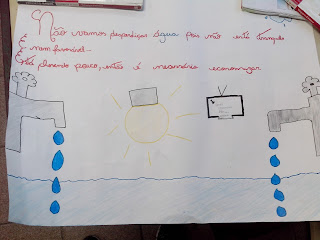 Não vamos desperdiçar água pois não está tranquilo
E nem favorável...
Está chovendo pouco, então é necessário economizar.